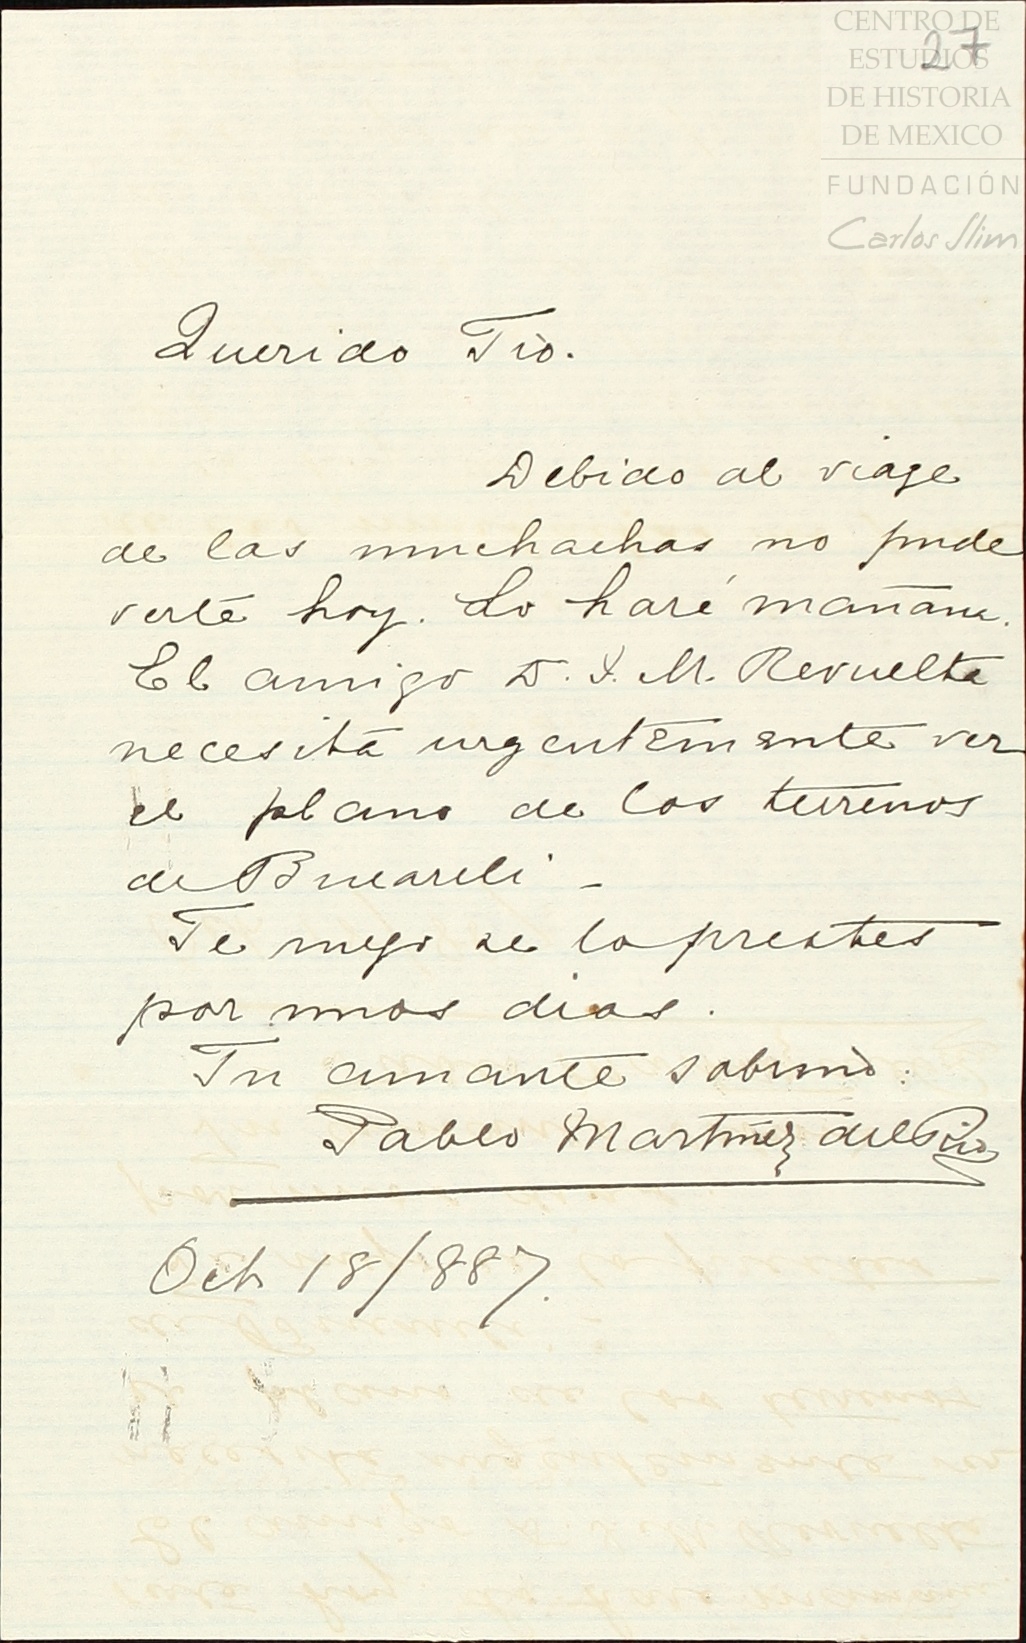 CENTRO DE
ESTUDIOS
DE HISTORIA
DE MEXICO
FUNDACIÓN
Carlos Slim
27
Querido Tio.
Debido al viage
de las muchachas no pude
verte hoy. Lo haré mañana.
El amigo D. J. M. Revuelta
necesita urgentemente ver
el plano de los terrenos
de Bucareli –
Te ruego se lo prestes
por unos dias.
Tu amante sobrino:
Pablo Martinez del Rio
Oct 18/887.